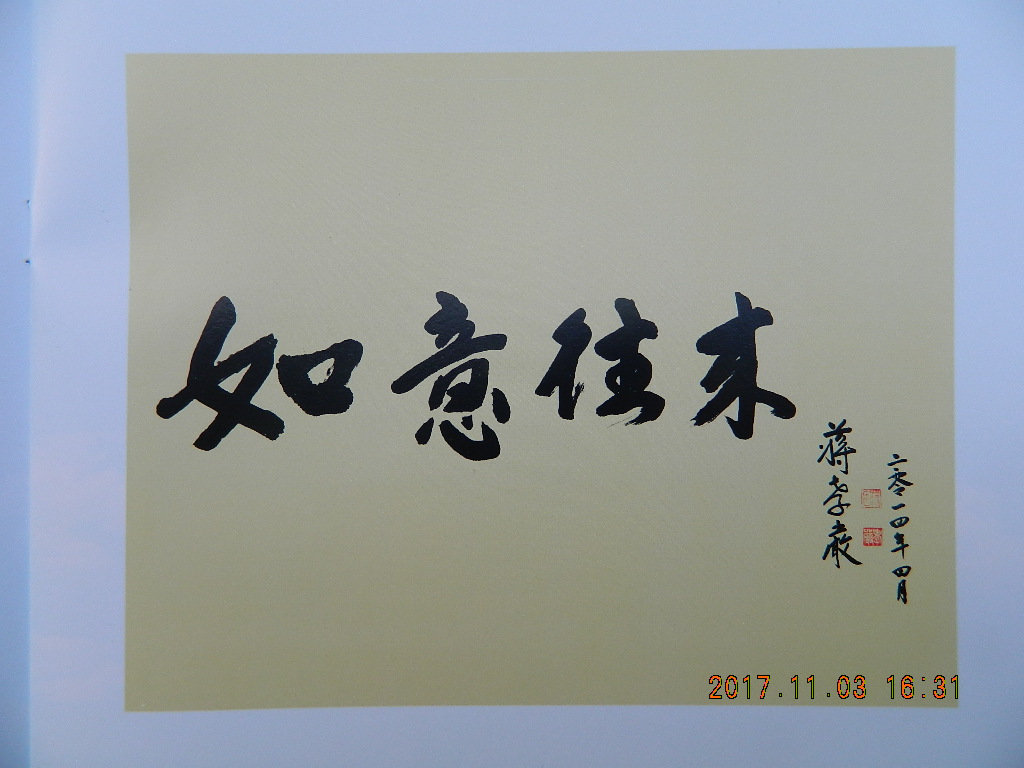 如意往来
蒋孝嚴
二零一四年四月
2017.11.03 16:31